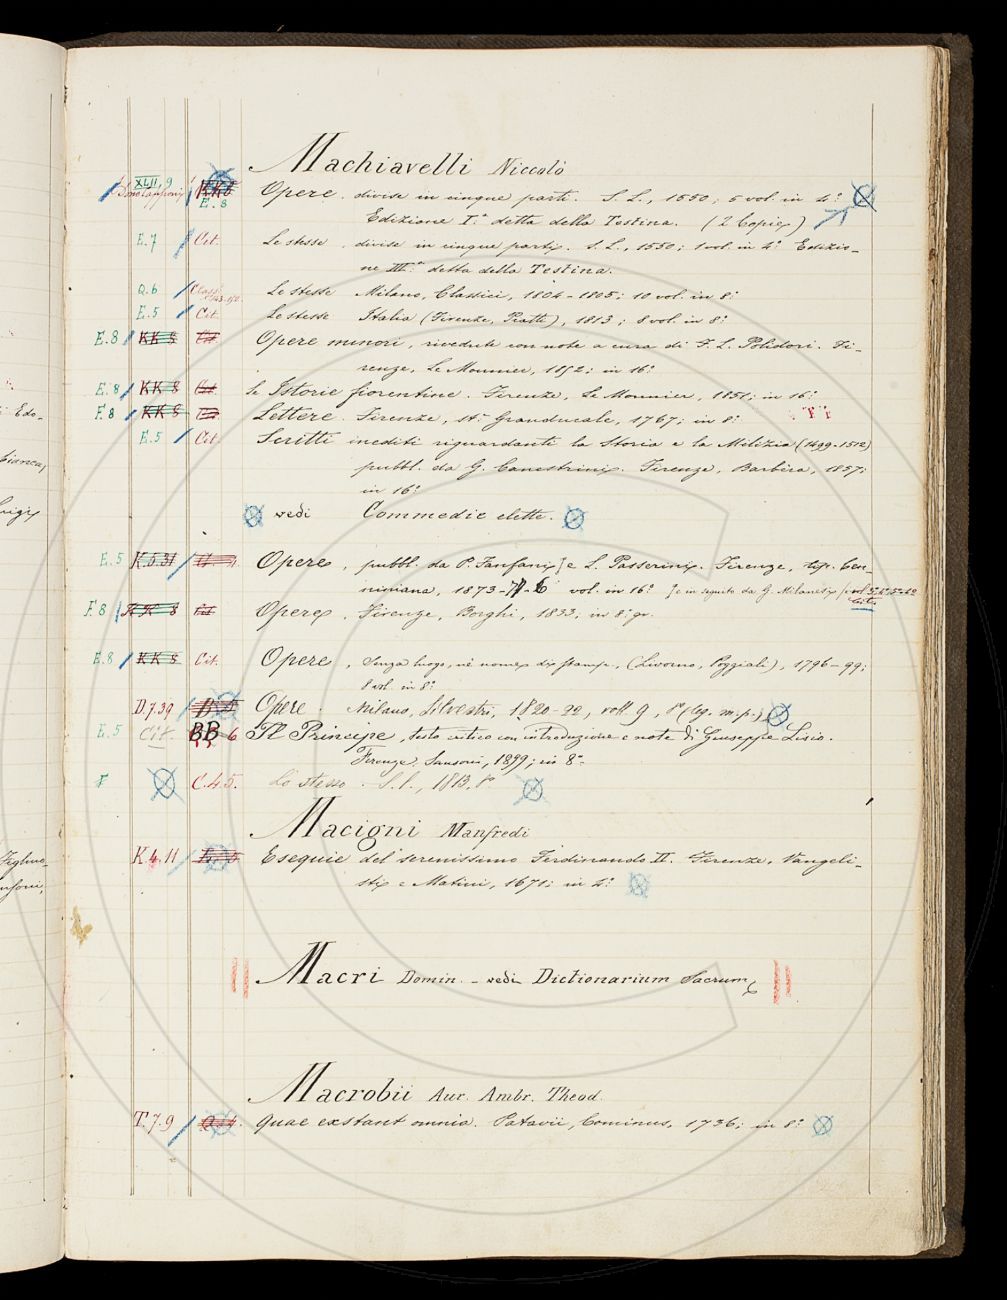 Machiavelli Niccolò
XLII, 9 KK6 Opere. divise in cinque parti. S. L., 1550; 5 vol. in 4.°
E. 8 Edizione I.ª detta della Testina. (2 Copie)
E. 7 Cit. Le stesse, divise in cinque parti. S. L., 1550; 1 vol. in 4.° Edizio-
ne III.ª detta della Testina.
Q. 6 Class. Le stesse Milano, Classici, 1804-1805; 10 vol. in 8.°
E. 5 Cit. Le stesse Italia (Firenze, Piatti), 1813; 8 vol. in 8.°
E. 8 KK 8 Cit. Opere minori, rivedute con note a cura di F. L. Polidori. Fi-
renze, Le Monnier, 1852; in 16.°
E. 8 KK 8 Cit. le Istorie fiorentine. Firenze, Le Monnier, 1851; in 16.°
F. 8 KK 8 Lettere. Firenze, st.ª Granducale, 1767; in 8.°
E. 5 Cit. Scritti inediti riguardanti la Storia e la Milizia (1499-1512)
pubbl. da G. Canestrini. Firenze, Barbèra, 1857;
in 16.°
vedi Commedie elette.
E. 5 K.5.31 Opere, pubbl. da P. Fanfani] e L. Passerini. Firenze, tip. Cen-
niniana, 1873-76 vol. in 16.° [e in seguito da G. Milanesi]
F 8 KK 8 Cit Opere, Firenze, Borghi, 1833; in 8.° gr.
E. 8 KK 8 Cit. Opere, senza luogo, nè nome di stamp., (Livorno, Poggiali), 1796-99;
8 vol. in 8.°
D.7.39 Opere. Milano, Silvestri, 1820-22, voll. 9, 8° (leg. m. p.)
E. 5 Cit. BB 6 Il Principe, testo critico con introduzione e note di Giuseppe Lisio.
Firenze. Sansoni, 1899; in 8°
F C.4.5. Lo stesso. S. l., 1813, 8°
Macigni Manfredi
K 4. 11 Esequie del serenissimo Ferdinando II. Firenze, Vangeli-
sti e Matini, 1671; in 4.°
Macri Domin. - vedi Dictionarium Sacrum
Macrobii Aur. Ambr. Theod.
T. 7. 9 Quae exstant omnia. Patavii, Cominus, 1736; in 8.°